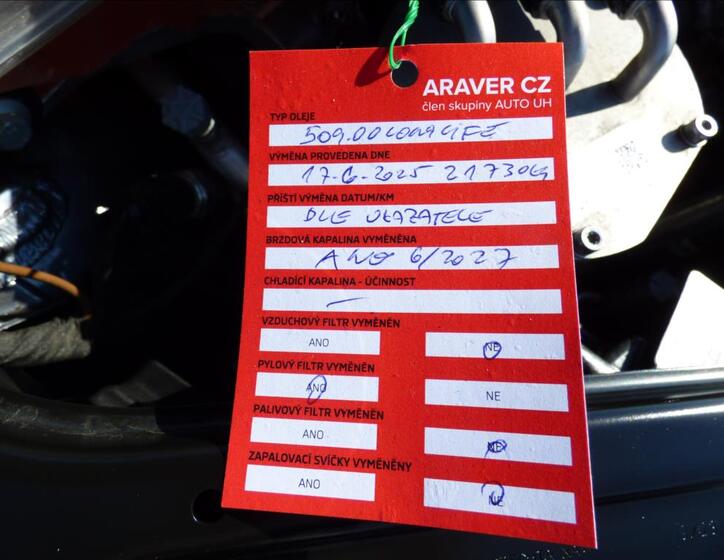 ARAVER CZ
člen skupiny AUTO UH
TYP OLEJE
509.00 LONGLIFE
VÝMĚNA PROVEDENA DNE
17.6.2025 21730KM
PŘÍŠTÍ VÝMĚNA DATUM/KM
DLE UKAZATELE
BRZDOVÁ KAPALINA VYMĚNĚNA
ANO 6/2027
CHLADÍCÍ KAPALINA - ÚČINNOST
—
VZDUCHOVÝ FILTR VYMĚNĚN
ANO NE
PYLOVÝ FILTR VYMĚNĚN
ANO NE
PALIVOVÝ FILTR VYMĚNĚN
ANO NE
ZAPALOVACÍ SVÍČKY VYMĚNĚNY
ANO NE